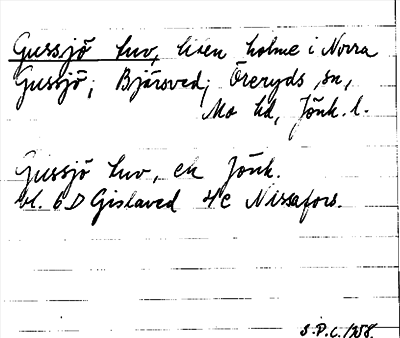 Gussjö huv, liten holme i Norra
Gussjö; Bjärsved; Öreryds sn,
Mo hd, Jönk. l.
Gussjö huv, ek Jönk.
bl. 6D Gislaved 4c Nissafors.
S.P.C. 1958.